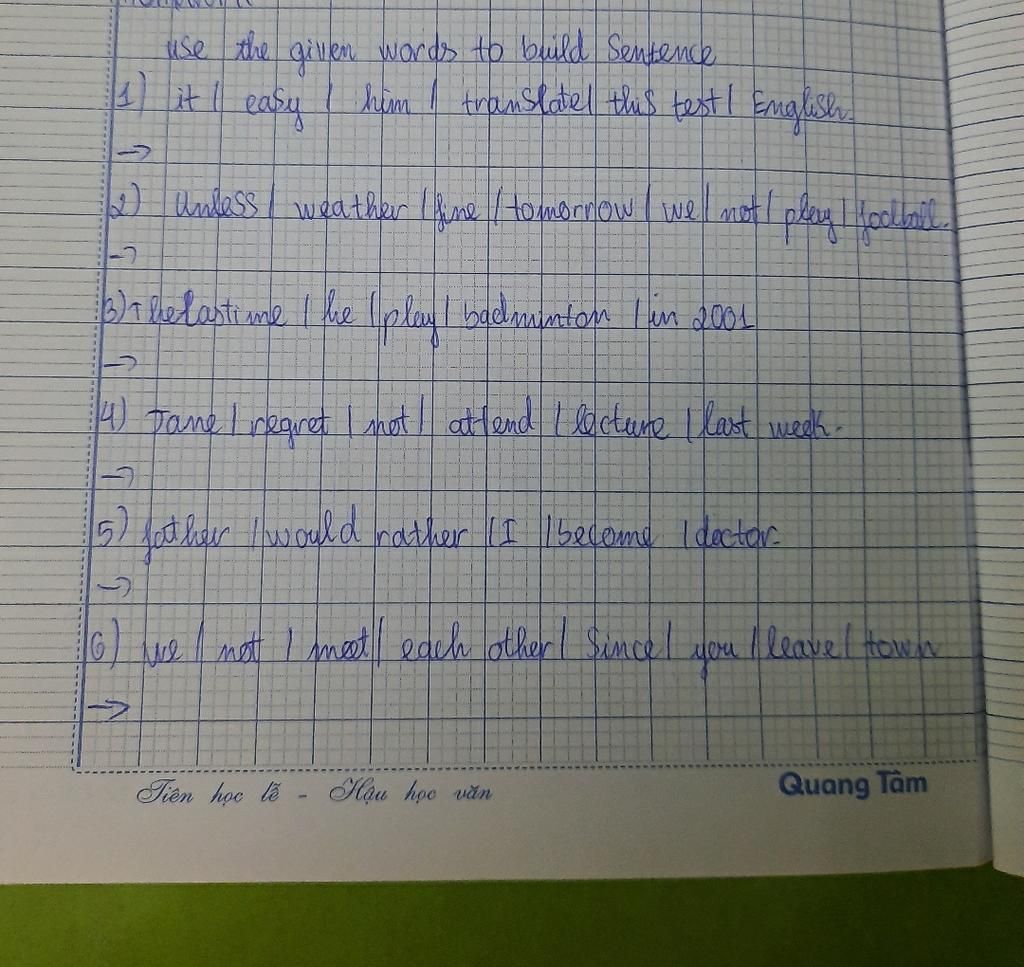 use the given words to build Sentence
1) it / easy / him / translate / this text / English.
→
2) Unless / weather / fine / tomorrow / we / not / play / football.
→
3) the lastime / he / play / badminton / in 2001
→
4) Jane / regret / not / attend / lecture / last week.
→
5) father / would rather / I / become / doctor.
→
6) we / not / meet / each other / Since / you / leave / town
→
Tiên học lễ - Hậu học văn
Quang Tâm